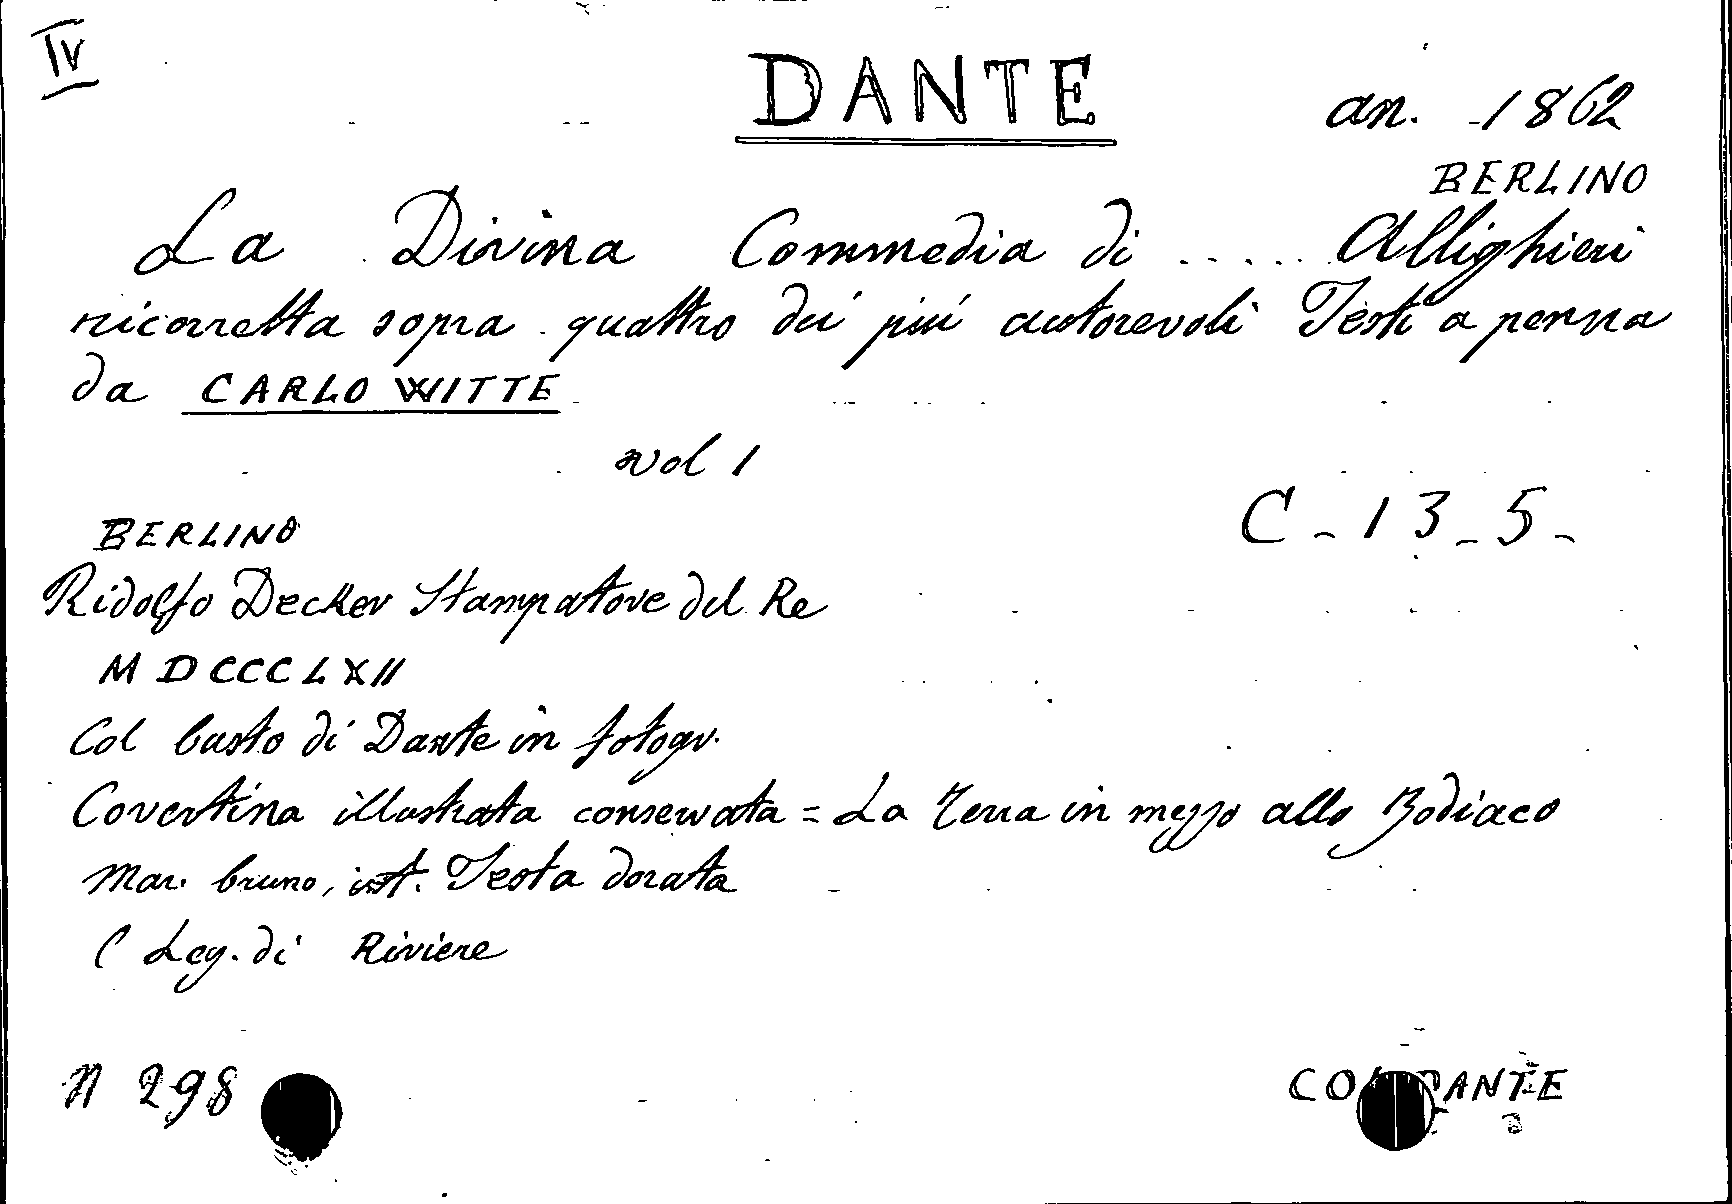 IV
DANTE
an. 1862
BERLINO
La Divina Commedia di ..... Allighieri
ricorretta sopra quattro dei più autorevoli Testi a penna
da CARLO WITTE
vol 1
C - 13 - 5 -
BERLINO
Ridolfo Decker Stampatore del Re
MDCCCLXII
Col busto di Dante in fotogr.
Covertina illustrata conservata = La Terra in mezzo allo Zodiaco
Mar. bruno, int. Testa dorata
( Leg. di Riviere
N 298
DANTE